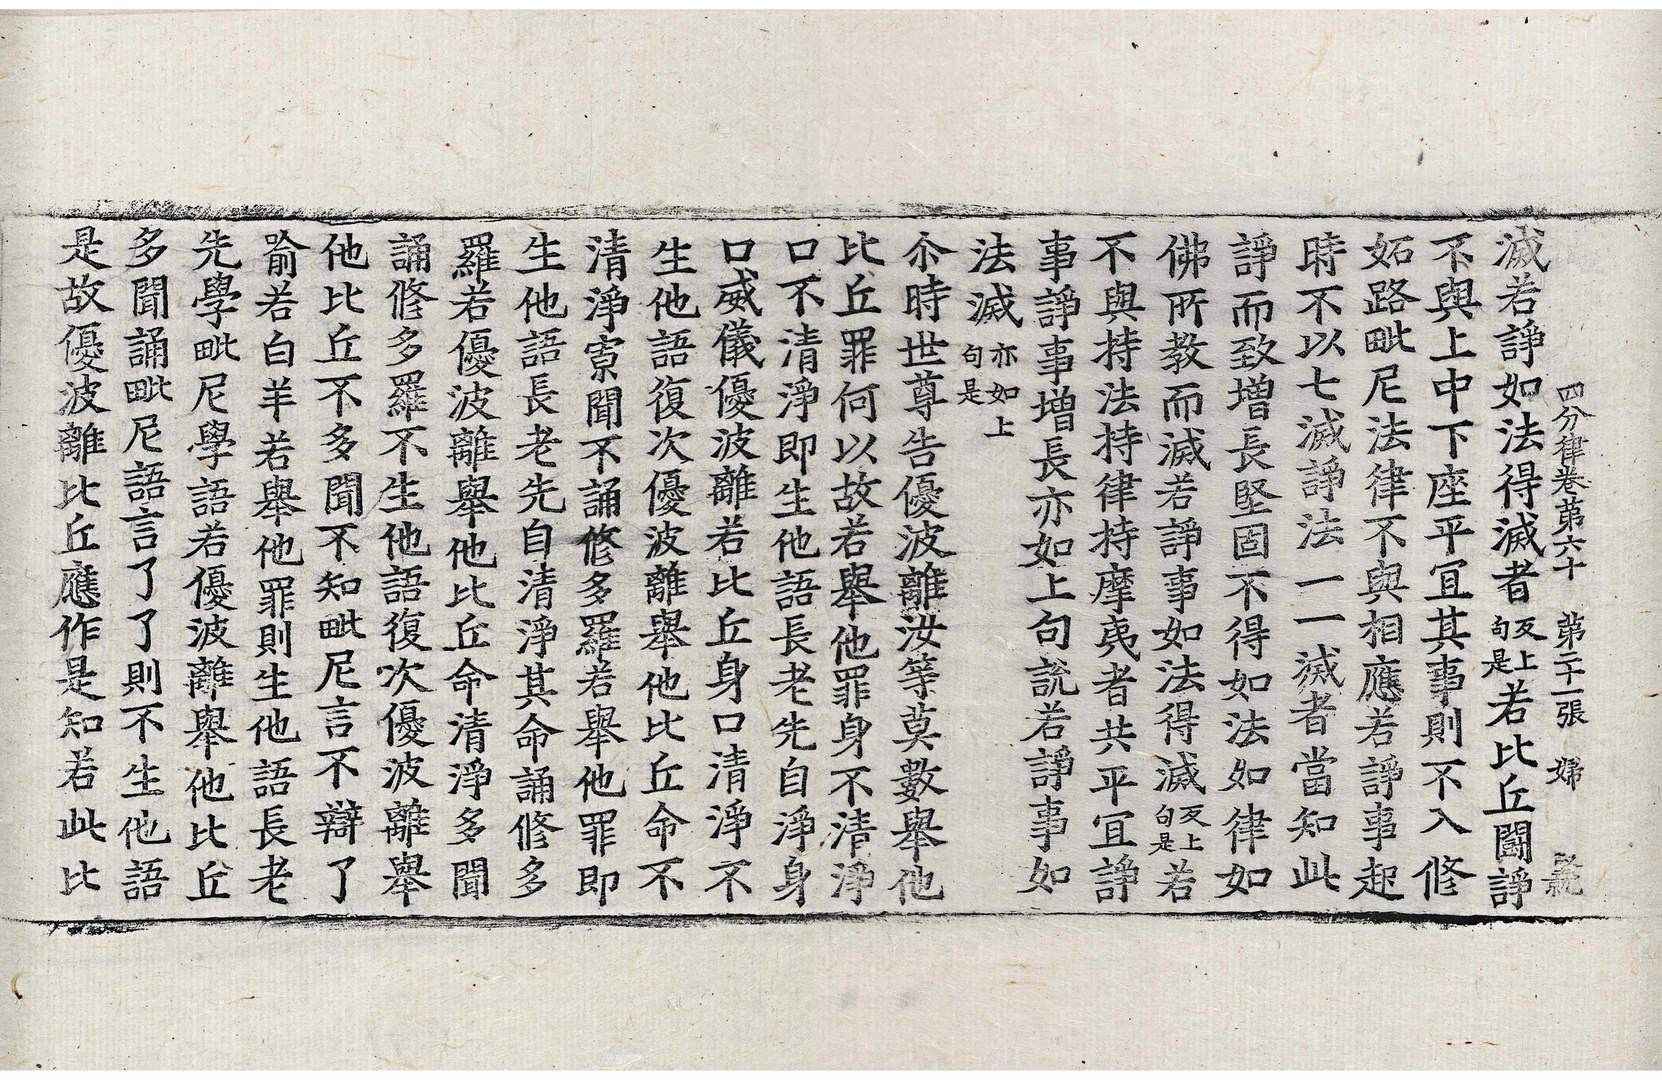 四分律卷第六十　第二十一張　婦
滅若諍如法得滅者反上句是若比丘鬪諍
不與上中下座平冝其事則不入修
妬路毗尼法律不與相應若諍事起
時不以七滅諍法一一滅者當知此
諍而致增長堅固不得如法如律如
佛所教而滅若諍事如法得滅反上句是若
不與持法持律持摩夷者共平冝諍
事諍事增長亦如上句說若諍事如
法滅亦如上句是
尒時世尊告優波離汝等莫數舉他
比丘罪何以故若舉他罪身不清淨
口不清淨即生他語長老先自淨身
口威儀優波離若比丘身口清淨不
生他語復次優波離舉他比丘命不
清淨寡聞不誦修多羅若舉他罪即
生他語長老先自清淨其命誦修多
羅若優波離舉他比丘命清淨多聞
誦修多羅不生他語復次優波離舉
他比丘不多聞不知毗尼言不辯了
喻若白羊若舉他罪則生他語長老
先學毗尼學語若優波離舉他比丘
多聞誦毗尼語言了了則不生他語
是故優波離比丘應作是知若此比